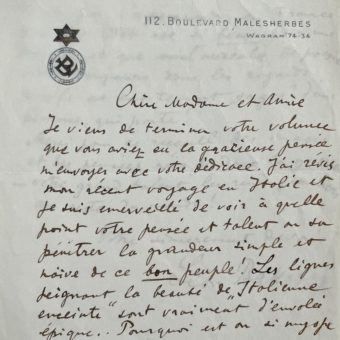 112. BOULEVARD MALESHERBES
WAGRAM 74-34
Chère Madame et Amie
Je viens de terminer votre volume
que vous aviez eu la gracieuse pensée
m'envoyer avec votre dédicace. J'ai revis
mon récent voyage en Italie et
je suis émerveillé de voir à quelle
point votre pensée et talent on su
pénétrer la grandeur simple et
naïve de ce bon peuple. Les lignes
peignant la beauté de "Italienne
enceinte" sont vraiment d'envolée
épique.. Pourquoi est on si